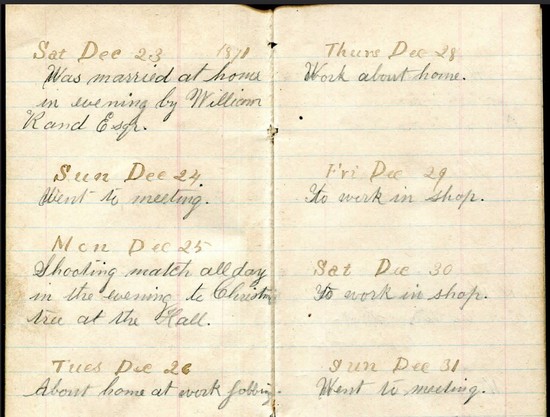 Sat Dec 23 1871
Was married at home
in evening by William
Rand Esqr.
Sun Dec 24
Went to meeting.
Mon Dec 25
Shooting match all day
in the evening to Christm
tree at the Hall.
Tues Dec 26
About home at work jobbing.
Thurs Dec 28
Work about home.
Fri Dec 29
To work in shop.
Sat Dec 30
To work in shop.
Sun Dec 31
Went to meeting.